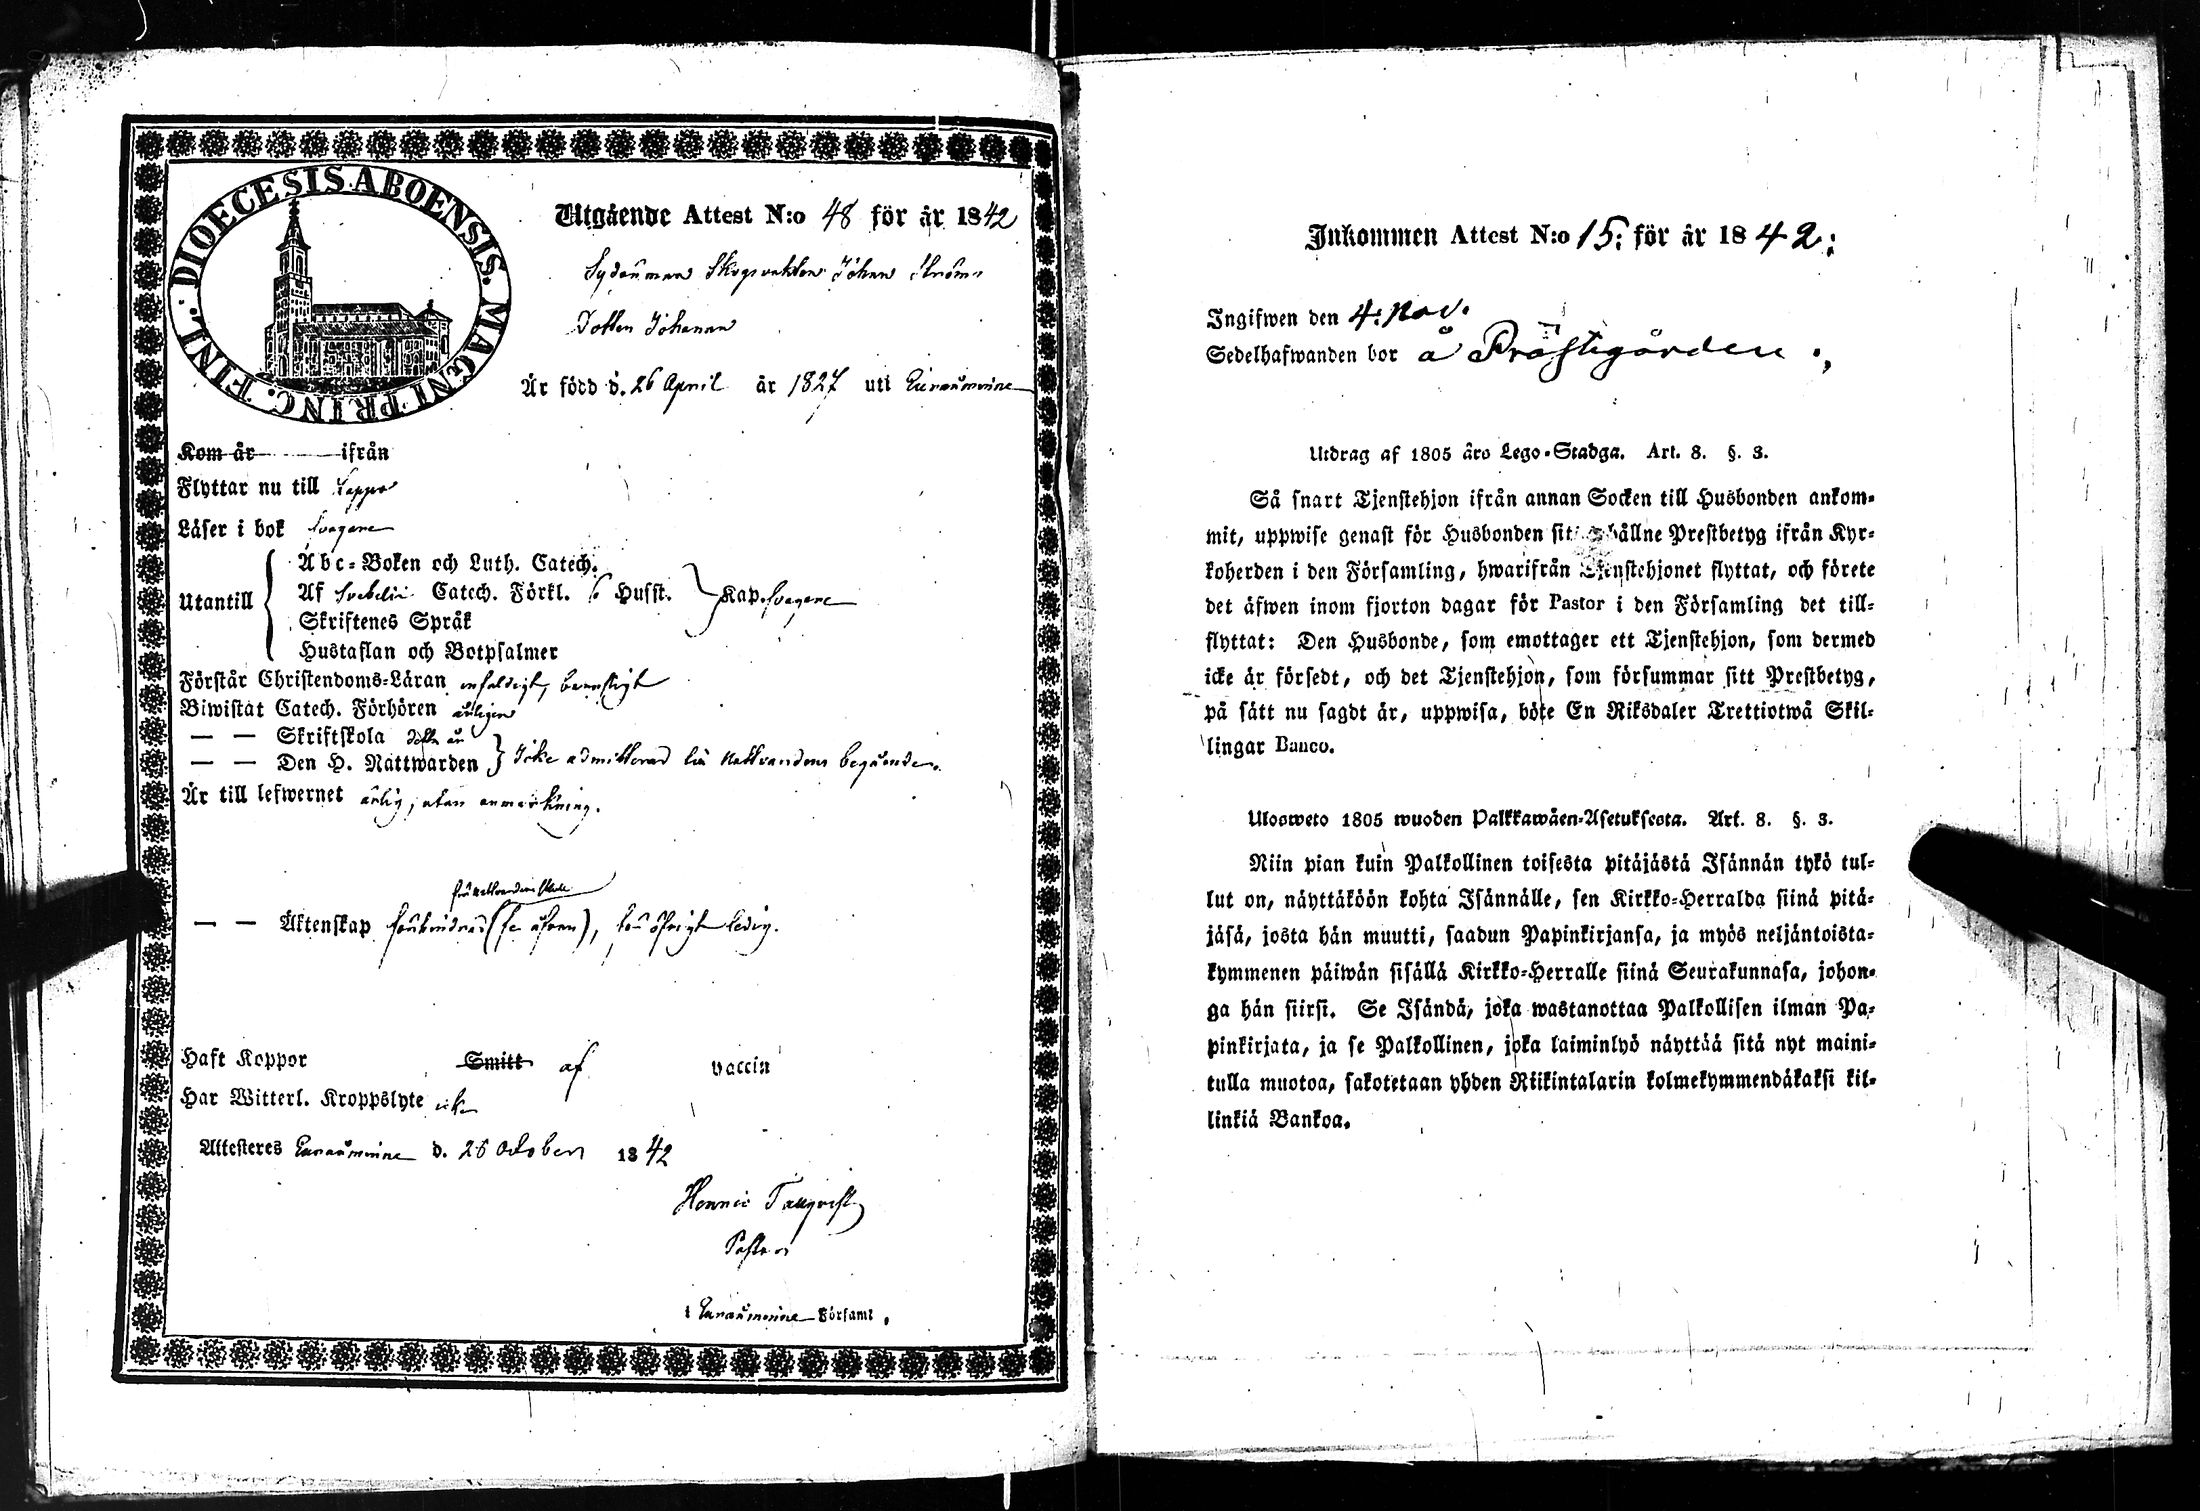 DIOECESIS ABOENSIS. MAGNI PRINC. FINL.
Utgående Attest N:o 48 för år 1842
Skogsvakten Johan Ströms
Dotter Johanna
Är född d. 26 April år 1827 uti Euraåminne
Kom år ifrån
Flyttar nu till Lappo
Läser i bok svagare
Utantill
Abc-Boken och Luth. Catech.
Af Svebelii Catech. Förkl. Husst. Kap. svagare
Skriftenes Språk
Hustaflan och Botpsalmer
Förstår Christendoms-Läran enfaldigt,
Biwistat Catech. Förhören årligen
— — Skriftskola detta år
— — Den H. Nattwarden Icke admitterad till Nattvardens begående.
Är till lefwernet ärlig, utan anmärkning.
— — Äktenskap förhindrad (se ofvan), för öfrigt ledig.
Haft Koppor Smitt af vaccin
Har Witterl. Kroppslyte icke
Attesteres Euraåminne d. 26 October 1842
Henric Tallqvist
Pastor
i Euraåminne Församl.
Inkommen Attest N:o 15: för år 1842:
Ingifwen den 4: Nov.
Sedelhafwanden bor å Prästgården.
Utdrag af 1805 års Lego-Stadga. Art. 8. §. 3.
Så snart Tjenstehjon ifrån annan Socken till Husbonden ankom-
mit, uppwise genast för Husbonden sitt hållne Prestbetyg ifrån Kyr-
koherden i den Församling, hwarifrån Tjenstehjonet flyttat, och förete
det äfwen inom fjorton dagar för Pastor i den Församling det till-
flyttat: Den Husbonde, som emottager ett Tjenstehjon, som dermed
icke är försedt, och det Tjenstehjon, som försummar sitt Prestbetyg,
på sätt nu sagdt är, uppwisa, böte En Riksdaler Trettiotwå Skil-
lingar Banco.
Ulosweto 1805 wuoden Palkkawäen-Asetuksesta. Art. 8. §. 3.
Niin pian kuin Palkollinen toisesta pitäjästä Isännän tykö tul-
lut on, näyttäköön kohta Isännälle, sen Kirkko-Herralda siinä pitä-
jäsä, josta hän muutti, saadun Papinkirjansa, ja myös neljäntoista-
kymmenen päiwän sisällä Kirkko-Herralle siinä Seurakunnasa, johon-
ga hän siirsi. Se Isändä, joka wastanottaa Palkollisen ilman Pa-
pinkirjata, ja se Palkollinen, joka laiminlyö näyttää sitä nyt maini-
tulla muotoa, sakotetaan yhden Riikintalarin kolmekymmendäkaksi kil-
linkiä Bankoa.